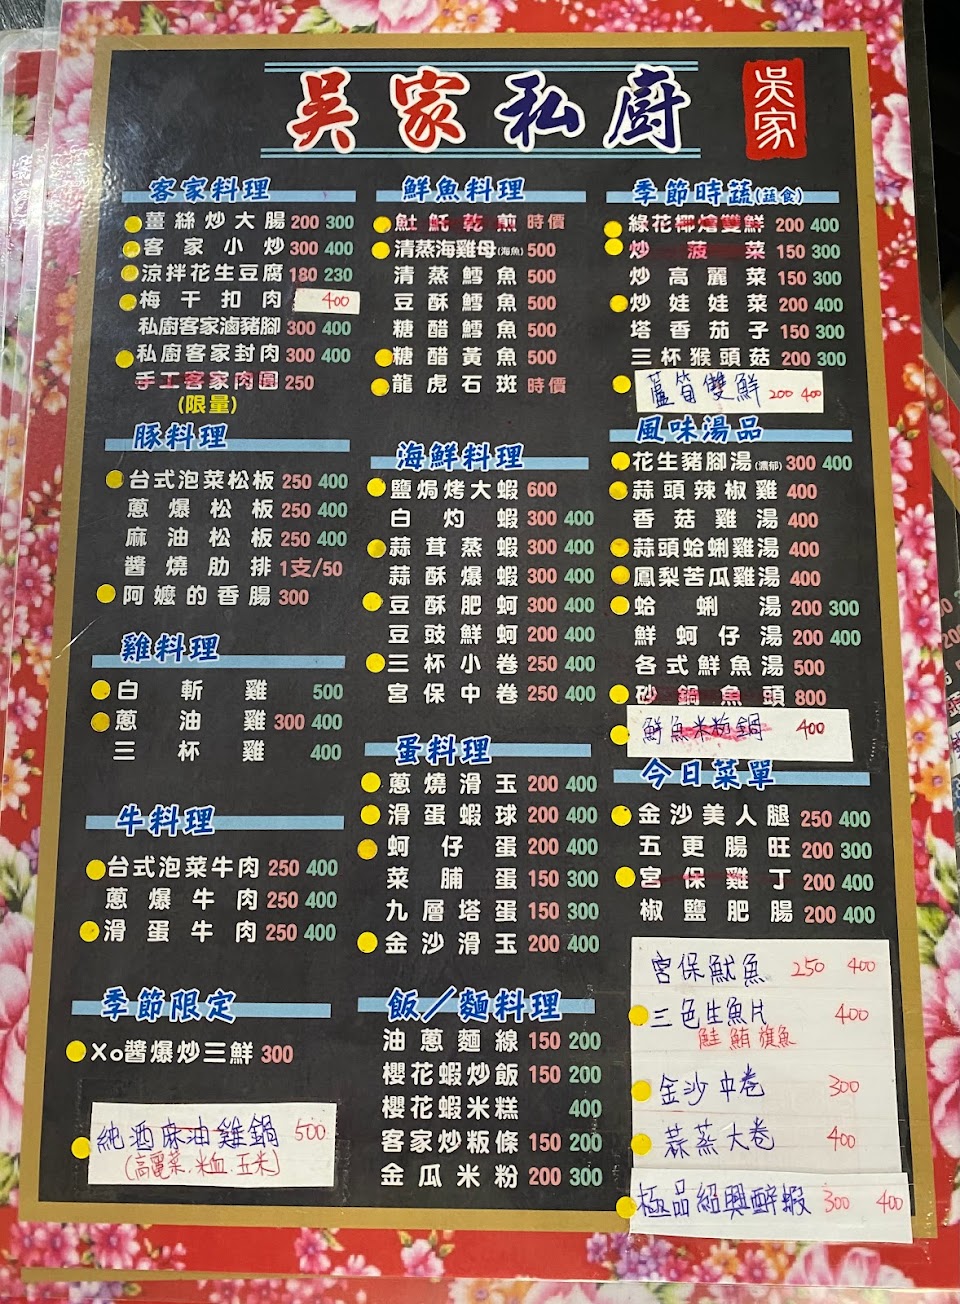 吳家私廚
吳家
客家料理
薑絲炒大腸 200 300
客家小炒 300 400
涼拌花生豆腐 180 230
梅干扣肉 400
私廚客家滷豬腳 300 400
私廚客家封肉 300 400
手工客家肉圓 250
(限量)
豚料理
台式泡菜松板 250 400
蔥爆松板 250 400
麻油松板 250 400
醬燒肋排 1支/50
阿嬤的香腸 300
雞料理
白斬雞 500
蔥油雞 300 400
三杯雞 400
牛料理
台式泡菜牛肉 250 400
蔥爆牛肉 250 400
滑蛋牛肉 250 400
季節限定
Xo醬爆炒三鮮 300
純酒麻油雞鍋 500
(高麗菜.米血.玉米)
鮮魚料理
魠魠乾煎 時價
清蒸海雞母(海魚) 500
清蒸鱈魚 500
豆酥鱈魚 500
糖醋鱈魚 500
糖醋黃魚 500
龍虎石斑 時價
海鮮料理
鹽焗烤大蝦 600
白灼蝦 300 400
蒜茸蒸蝦 300 400
蒜酥爆蝦 300 400
豆酥肥蚵 300 400
豆豉鮮蚵 200 400
三杯小卷 250 400
宮保中卷 250 400
蛋料理
蔥燒滑玉 200 400
滑蛋蝦球 200 400
蚵仔蛋 200 400
菜脯蛋 150 300
九層塔蛋 150 300
金沙滑玉 200 400
飯／麵料理
油蔥麵線 150 200
櫻花蝦炒飯 150 200
櫻花蝦米糕 400
客家炒粄條 150 200
金瓜米粉 200 300
季節時蔬(蔬食)
綠花椰燴雙鮮 200 400
炒菠菜 150 300
炒高麗菜 150 300
炒娃娃菜 200 400
塔香茄子 150 300
三杯猴頭菇 200 300
蘆筍雙鮮 200 400
風味湯品
花生豬腳湯(濃郁) 300 400
蒜頭辣椒雞 400
香菇雞湯 400
蒜頭蛤蜊雞湯 400
鳳梨苦瓜雞湯 400
蛤蜊湯 200 300
鮮蚵仔湯 200 400
各式鮮魚湯 500
砂鍋魚頭 800
鮮魚米粉鍋 400
今日菜單
金沙美人腿 250 400
五更腸旺 200 300
宮保雞丁 200 400
椒鹽肥腸 200 400
宮保魷魚 250 400
三色生魚片 400
鮭 鮪 旗魚
金沙中卷 300
蒜蒸大卷 400
極品紹興醉蝦 300 400